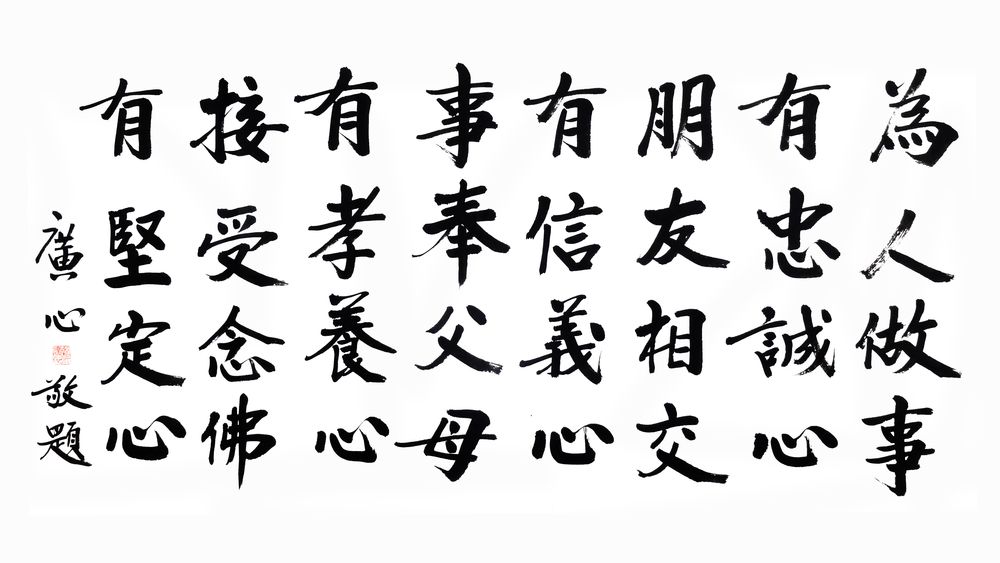 為人做事
有忠誠心
朋友相交
有信義心
事奉父母
有孝養心
接受念佛
有堅定心
廣心敬題